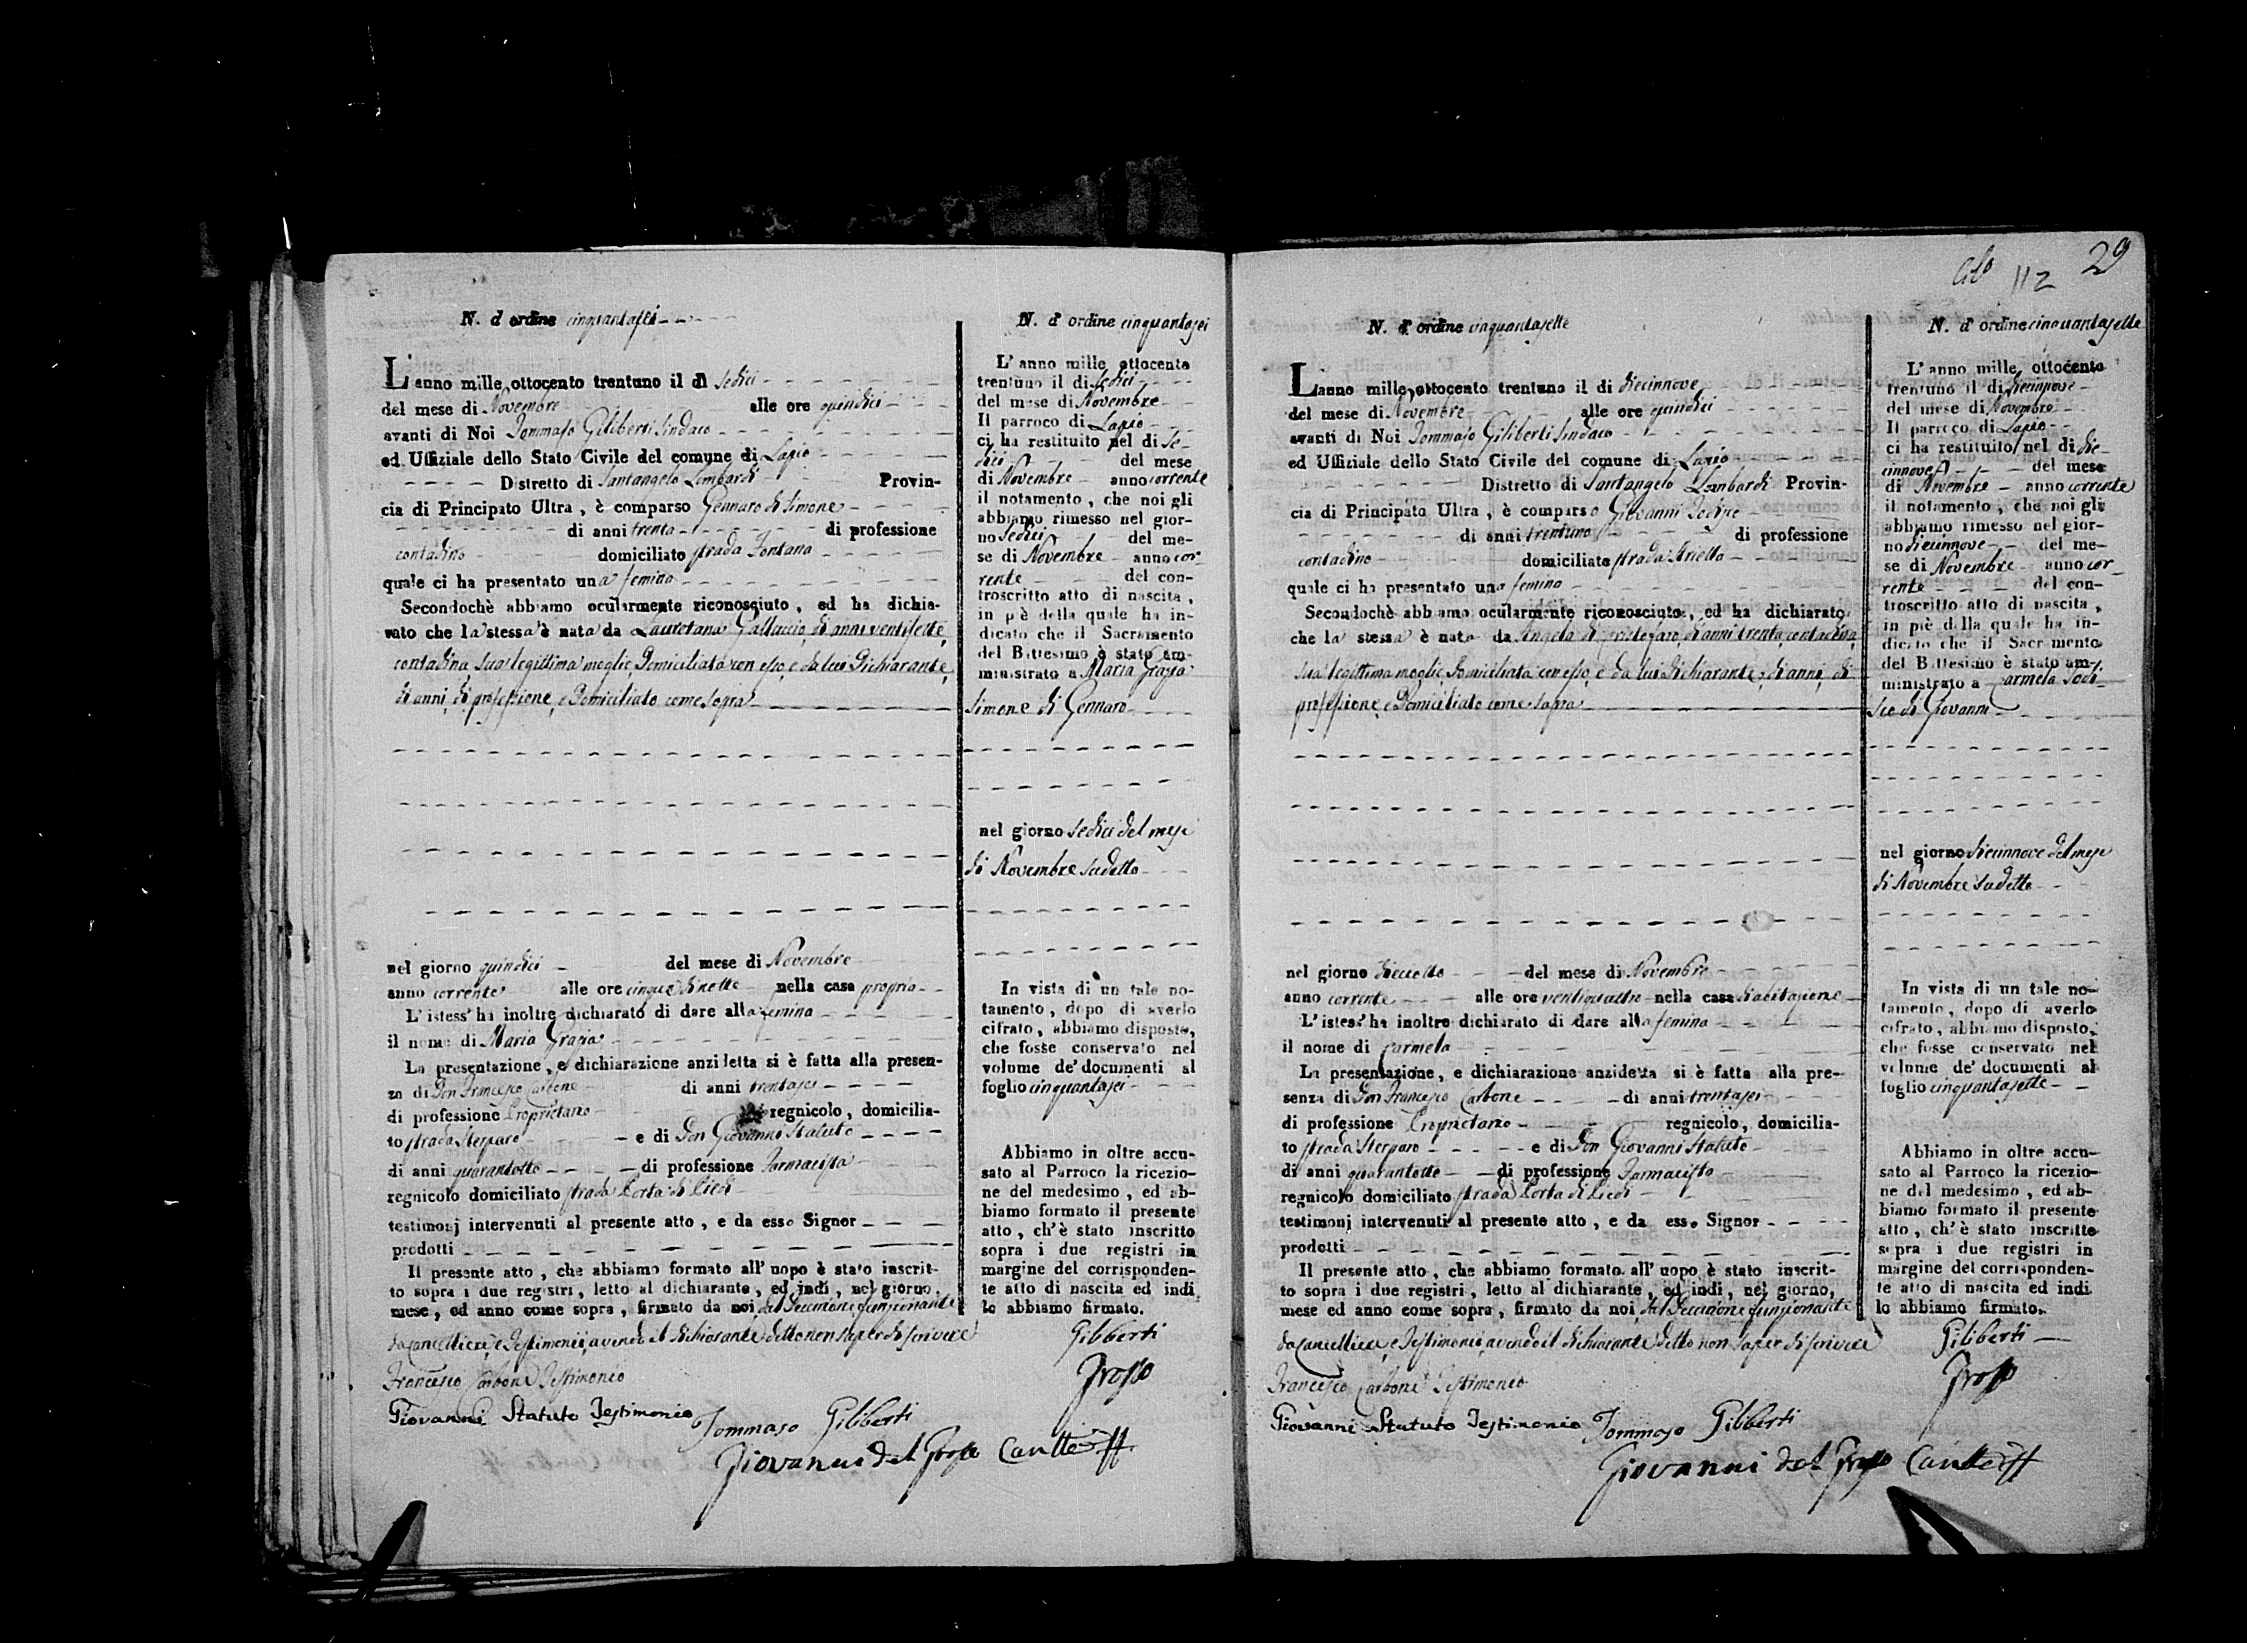 N. d'ordine cinquantasei
L'anno mille ottocento trentuno il dì sedici
del mese di Novembre alle ore quindici
avanti di Noi Tommaso Giliberti Sindaco
ed Uffiziale dello Stato Civile del comune di Lapio
Distretto di Santangelo Lombardi Provin-
cia di Principato Ultra, è comparso Gennaro di Simone
di anni trenta di professione
contadino domiciliato strada Fontana
quale ci ha presentato una femina
Secondochè abbiamo ocularmente riconosciuto, ed ha dichia-
rato che la stessa è nata da Lauretana Galluccio, di anni ventisette,
contadina, sua legittima moglie, Domiciliata con esso, e da lui Dichiarante,
di anni, di professione, e Domiciliato come sopra
nel giorno quindici del mese di Novembre
anno corrente alle ore cinque di notte nella casa propria
L'istess' ha inoltre dichiarato di dare alla femina
il nome di Maria Grazia
La presentazione, e dichiarazione anzidetta si è fatta alla presen-
za di Don Francesco Carbone di anni trentasei
di professione Proprietario regnicolo, domicilia-
to strada Sterparo e di Don Giovanni Statuto
di anni quarantotto di professione Farmacista
regnicolo domiciliato strada Porta di Piedi
testimonj intervenuti al presente atto, e da esso Signor
prodotti
Il presente atto, che abbiamo formato all'uopo è stato inscrit-
to sopra i due registri, letto al dichiarante, ed indi, nel giorno,
mese, ed anno come sopra, firmato da noi dal Decurione funzionante
da Cancelliere, e Testimonii, avendo il dichiarante detto non saper di scrivere
Francesco Carbone Testimonio
Giovanni Statuto Testimonio
Tommaso Giliberti
Giovanni del Grosso
N. d'ordine cinquantasei
L'anno mille ottocento
trentuno il dì sedici
del mese di Novembre
Il parroco di Lapio
ci ha restituito nel dì se-
dici del mese
di Novembre anno corrente
il notamento, che noi gli
abbiamo rimesso nel gior-
no sedici del me-
se di Novembre anno cor-
rente del con-
troscritto atto di nascita,
in piè della quale ha in-
dicato che il Sacramento
del Battesimo è stato am-
ministrato a Maria Grazia
Simone di Gennaro
nel giorno sedici del mese
di Novembre sudetto
In vista di un tale no-
tamento, dopo di averlo
cifrato, abbiamo disposto,
che fosse conservato nel
volume de' documenti al
foglio cinquantasei
Abbiamo in oltre accu-
sato al Parroco la ricezio-
ne del medesimo, ed ab-
biamo formato il presente
atto, ch'è stato inscritto
sopra i due registri in
margine del corrisponden-
te atto di nascita ed indi
lo abbiamo firmato.
Giliberti
Grosso
29
112
N. d'ordine cinquantasette
L'anno mille ottocento trentuno il dì diecinnove
del mese di Novembre alle ore quindici
avanti di Noi Tommaso Giliberti Sindaco
ed Uffiziale dello Stato Civile del comune di Lapio
Distretto di Santangelo Lombardi Provin-
cia di Principato Ultra, è comparso Giovanni
di anni trentuno di professione
contadino domiciliato strada Ariella
quale ci ha presentato una femina
Secondochè abbiamo ocularmente riconosciuto, ed ha dichiarato
che la stessa è nata da Angela di anni trenta, contadina,
sua legittima moglie Domiciliata con esso, e da lui dichiarante, di anni, di
professione, e Domiciliato come sopra
nel giorno dieciotto del mese di Novembre
anno corrente alle ore ventiquattro nella casa d'abitazione
L'istess' ha inoltre dichiarato di dare alla femina
il nome di Carmela
La presentazione, e dichiarazione anzidetta si è fatta alla pre-
senza di Don Francesco Carbone di anni trentasei
di professione Proprietario regnicolo, domicilia-
to strada Sterparo e di Don Giovanni Statuto
di anni quarantotto di professione Farmacista
regnicolo domiciliato strada Porta di Piedi
testimonj intervenuti al presente atto, e da esso Signor
prodotti
Il presente atto, che abbiamo formato all'uopo è stato inscrit-
to sopra i due registri, letto al dichiarante, ed indi, nel giorno,
mese ed anno come sopra, firmato da noi dal Decurione funzionante
da Cancelliere, e Testimonii, avendo il dichiarante detto non saper di scrivere
Francesco Carbone Testimonio
Giovanni Statuto Testimonio
Tommaso Giliberti
Giovanni del Grosso
N. d'ordine cinquantasette
L'anno mille ottocento
trentuno il dì diecinnove
del mese di Novembre
Il parroco di Lapio
ci ha restituito nel dì die-
cinnove del mese
di Novembre anno corrente
il notamento, che noi gli
abbiamo rimesso nel gior-
no diecinnove del me-
se di Novembre anno cor-
rente del con-
troscritto atto di nascita,
in piè della quale ha in-
dicato che il Sacramento
del Battesimo è stato am-
ministrato a Carmela
di Giovanni
nel giorno diecinnove del mese
di Novembre sudetto
In vista di un tale no-
tamento, dopo di averlo
cifrato, abbiamo disposto,
che fosse conservato nel
volume de' documenti al
foglio cinquantasette
Abbiamo in oltre accu-
sato al Parroco la ricezio-
ne del medesimo, ed ab-
biamo formato il presente
atto, ch'è stato inscritto
sopra i due registri in
margine del corrisponden-
te atto di nascita ed indi
lo abbiamo firmato.
Giliberti
Grosso